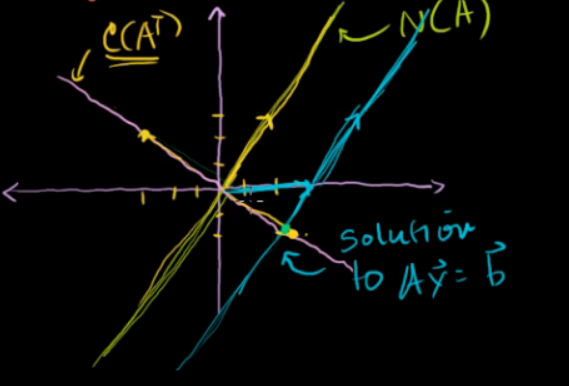 C(Aᵀ)
N(A)
Solution
to Ax⃗ = b⃗